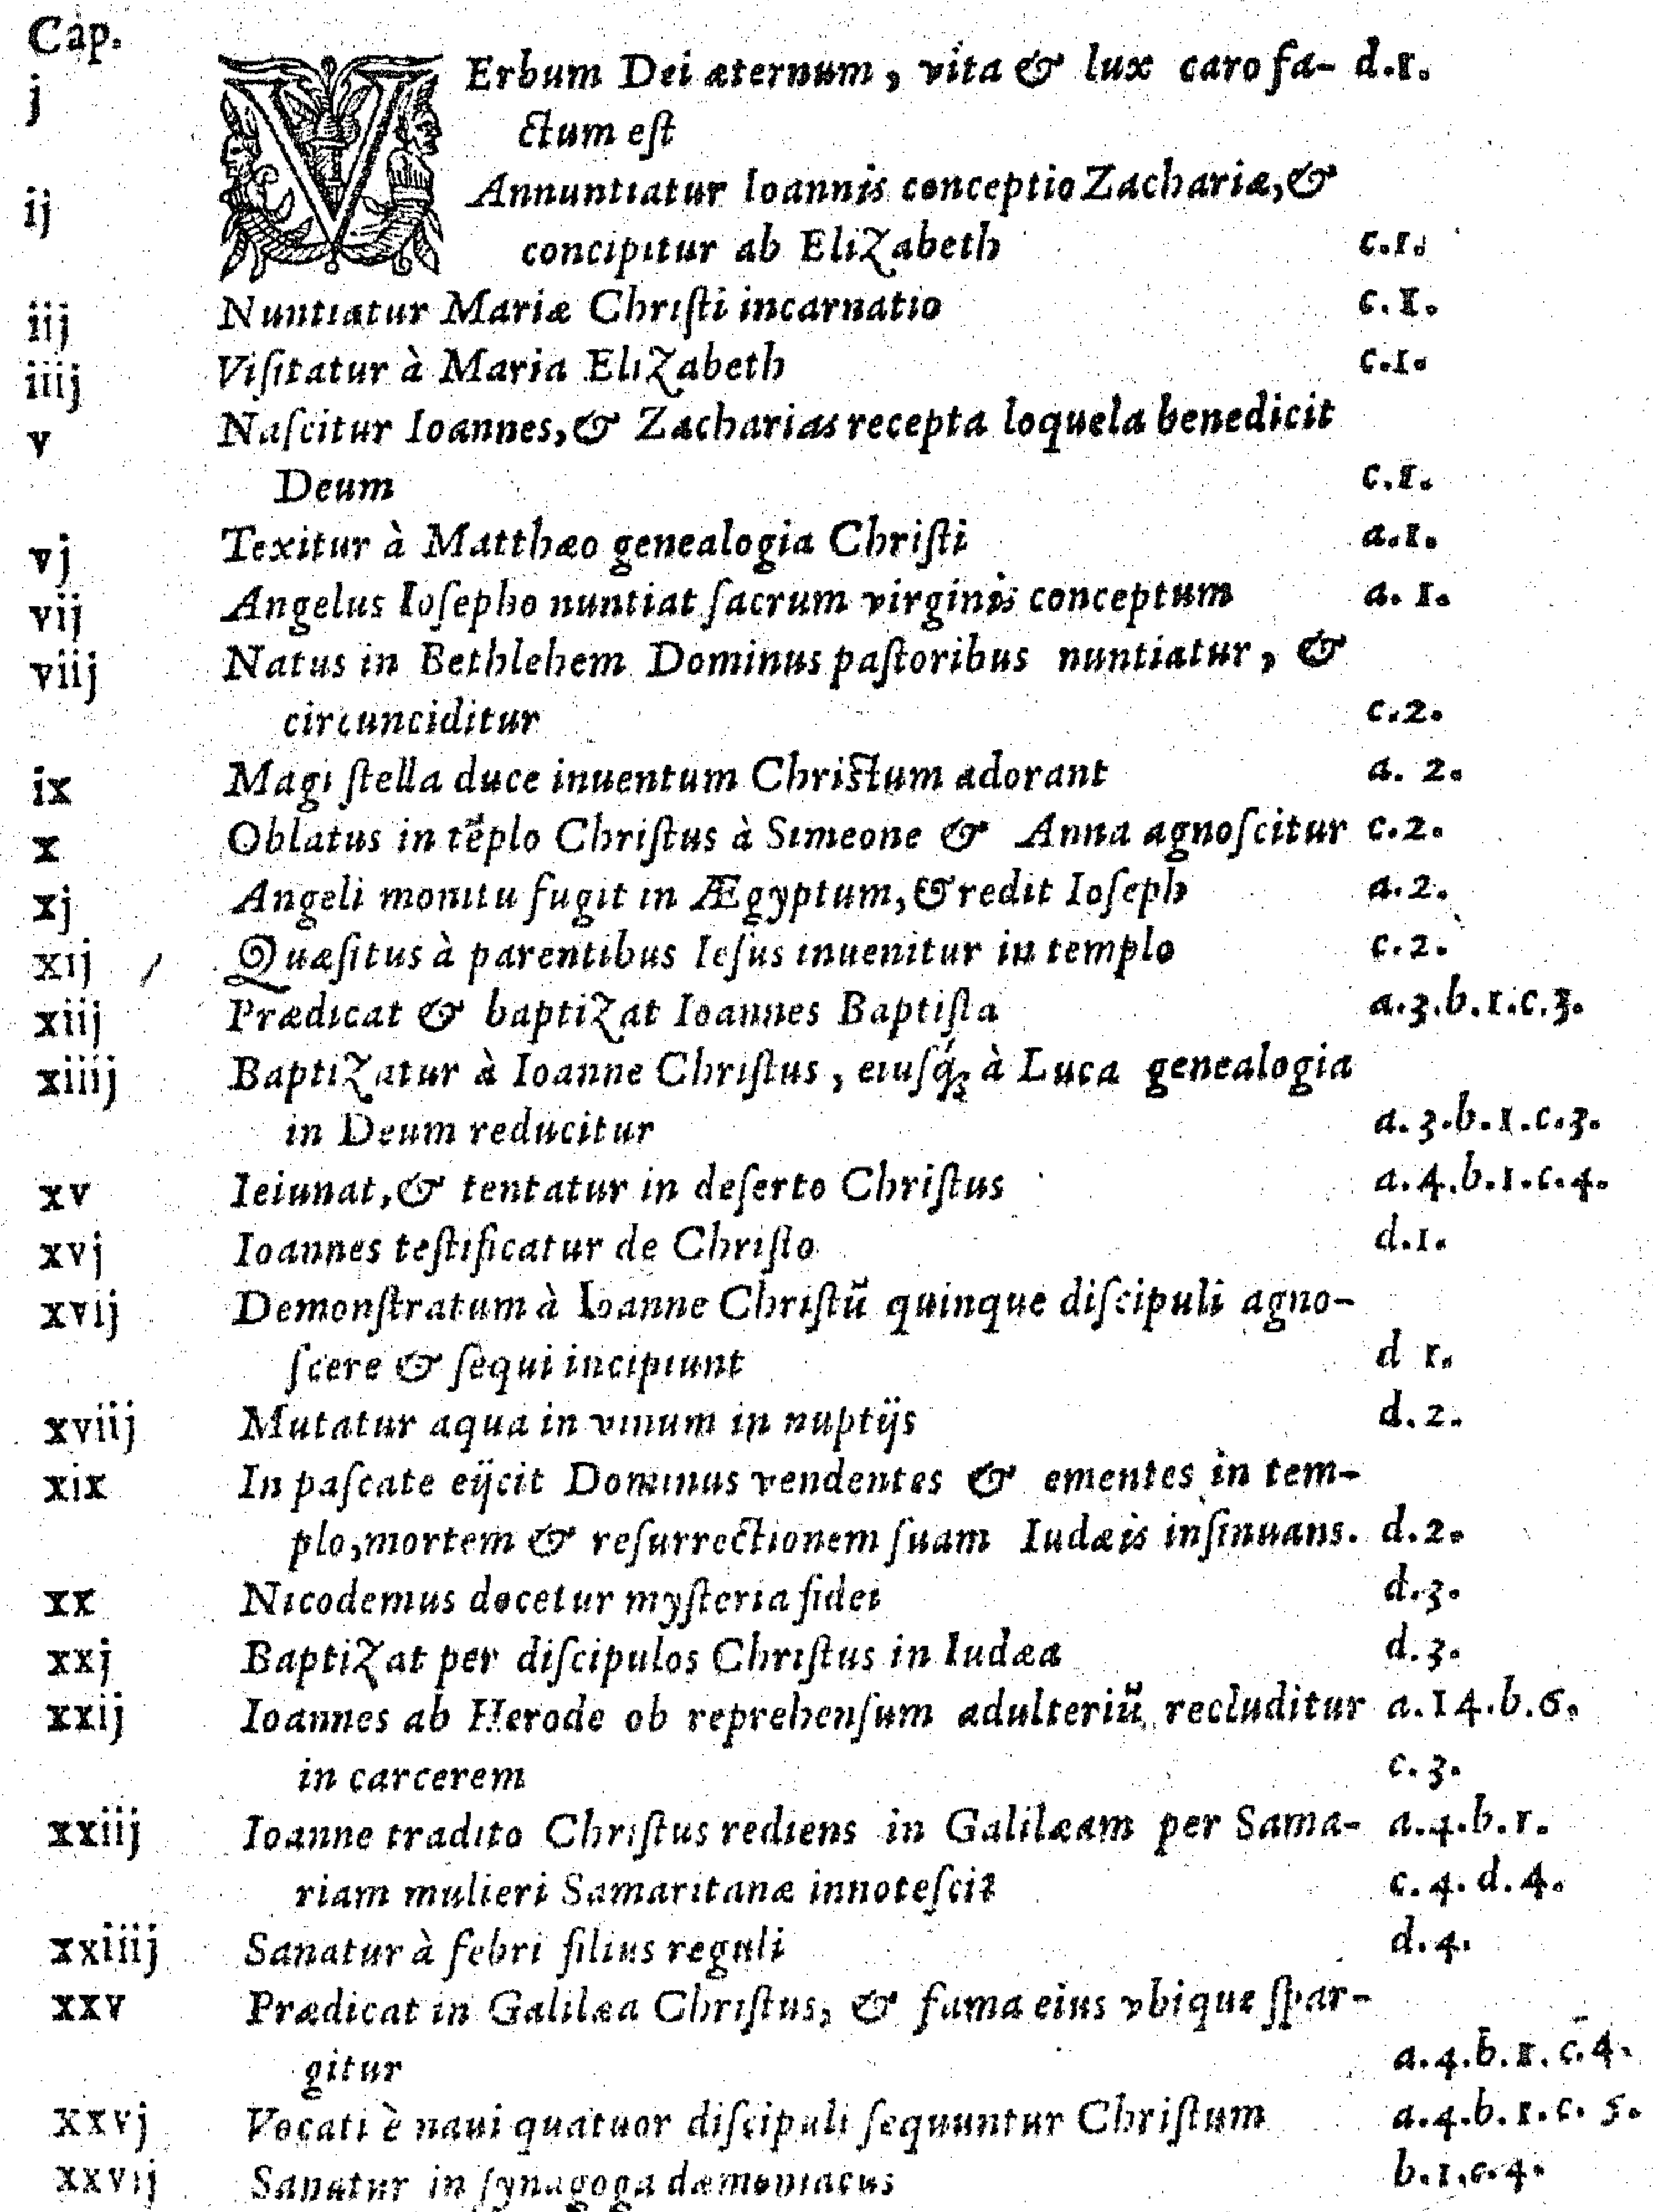 Cap.
j VErbum Dei æternum, vita & lux caro fa- d.1.
ctum eſt
ij Annuntiatur Ioannis conceptio Zachariæ, &
concipitur ab Elizabeth c.1.
iij Nuntiatur Mariæ Chriſti incarnatio c.1.
iiij Viſitatur à Maria Elizabeth c.1.
v Naſcitur Ioannes, & Zacharias recepta loquela benedicit
Deum c.1.
vj Texitur à Matthæo genealogia Chriſti a.1.
vij Angelus Ioſepho nuntiat ſacrum virginis conceptum a.1.
viij Natus in Bethlehem Dominus paſtoribus nuntiatur, &
circunciditur c.2.
ix Magi ſtella duce inuentum Chriſtum adorant a.2.
x Oblatus in tẽplo Chriſtus à Simeone & Anna agnoſcitur c.2.
xj Angeli monitu fugit in Ægyptum, & redit Ioſeph a.2.
xij Quæſitus à parentibus Ieſus inuenitur in templo c.2.
xiij Prædicat & baptizat Ioannes Baptiſta a.3.b.1.c.3.
xiiij Baptizatur à Ioanne Chriſtus, eiuſq́; à Luca genealogia
in Deum reducitur a.3.b.1.c.3.
xv Ieiunat, & tentatur in deſerto Chriſtus a.4.b.1.c.4.
xvj Ioannes teſtificatur de Chriſto d.1.
xvij Demonſtratum à Ioanne Chriſtũ quinque diſcipuli agno-
ſcere & ſequi incipiunt d 1.
xviij Mutatur aqua in vinum in nuptijs d.2.
xix In paſcate eijcit Dominus vendentes & ementes in tem-
plo, mortem & reſurrectionem ſuam Iudæis inſinuans. d.2.
xx Nicodemus docetur myſteria fidei d.3.
xxj Baptizat per diſcipulos Chriſtus in Iudæa d.3.
xxij Ioannes ab Herode ob reprehenſum adulteriũ recluditur a.14.b.6.
in carcerem c.3.
xxiij Ioanne tradito Chriſtus rediens in Galilæam per Sama- a.4.b.1.
riam mulieri Samaritanæ innoteſcit c.4.d.4.
xxiiij Sanatur à febri filius reguli d.4.
xxv Prædicat in Galilæa Chriſtus, & fama eius vbique ſpar-
gitur a.4.b.1.c.4.
xxvj Vocati è naui quatuor diſcipuli ſequuntur Chriſtum a.4.b.1.c.5.
xxvij Sanatur in ſynagoga dæmoniacus b.1.c.4.